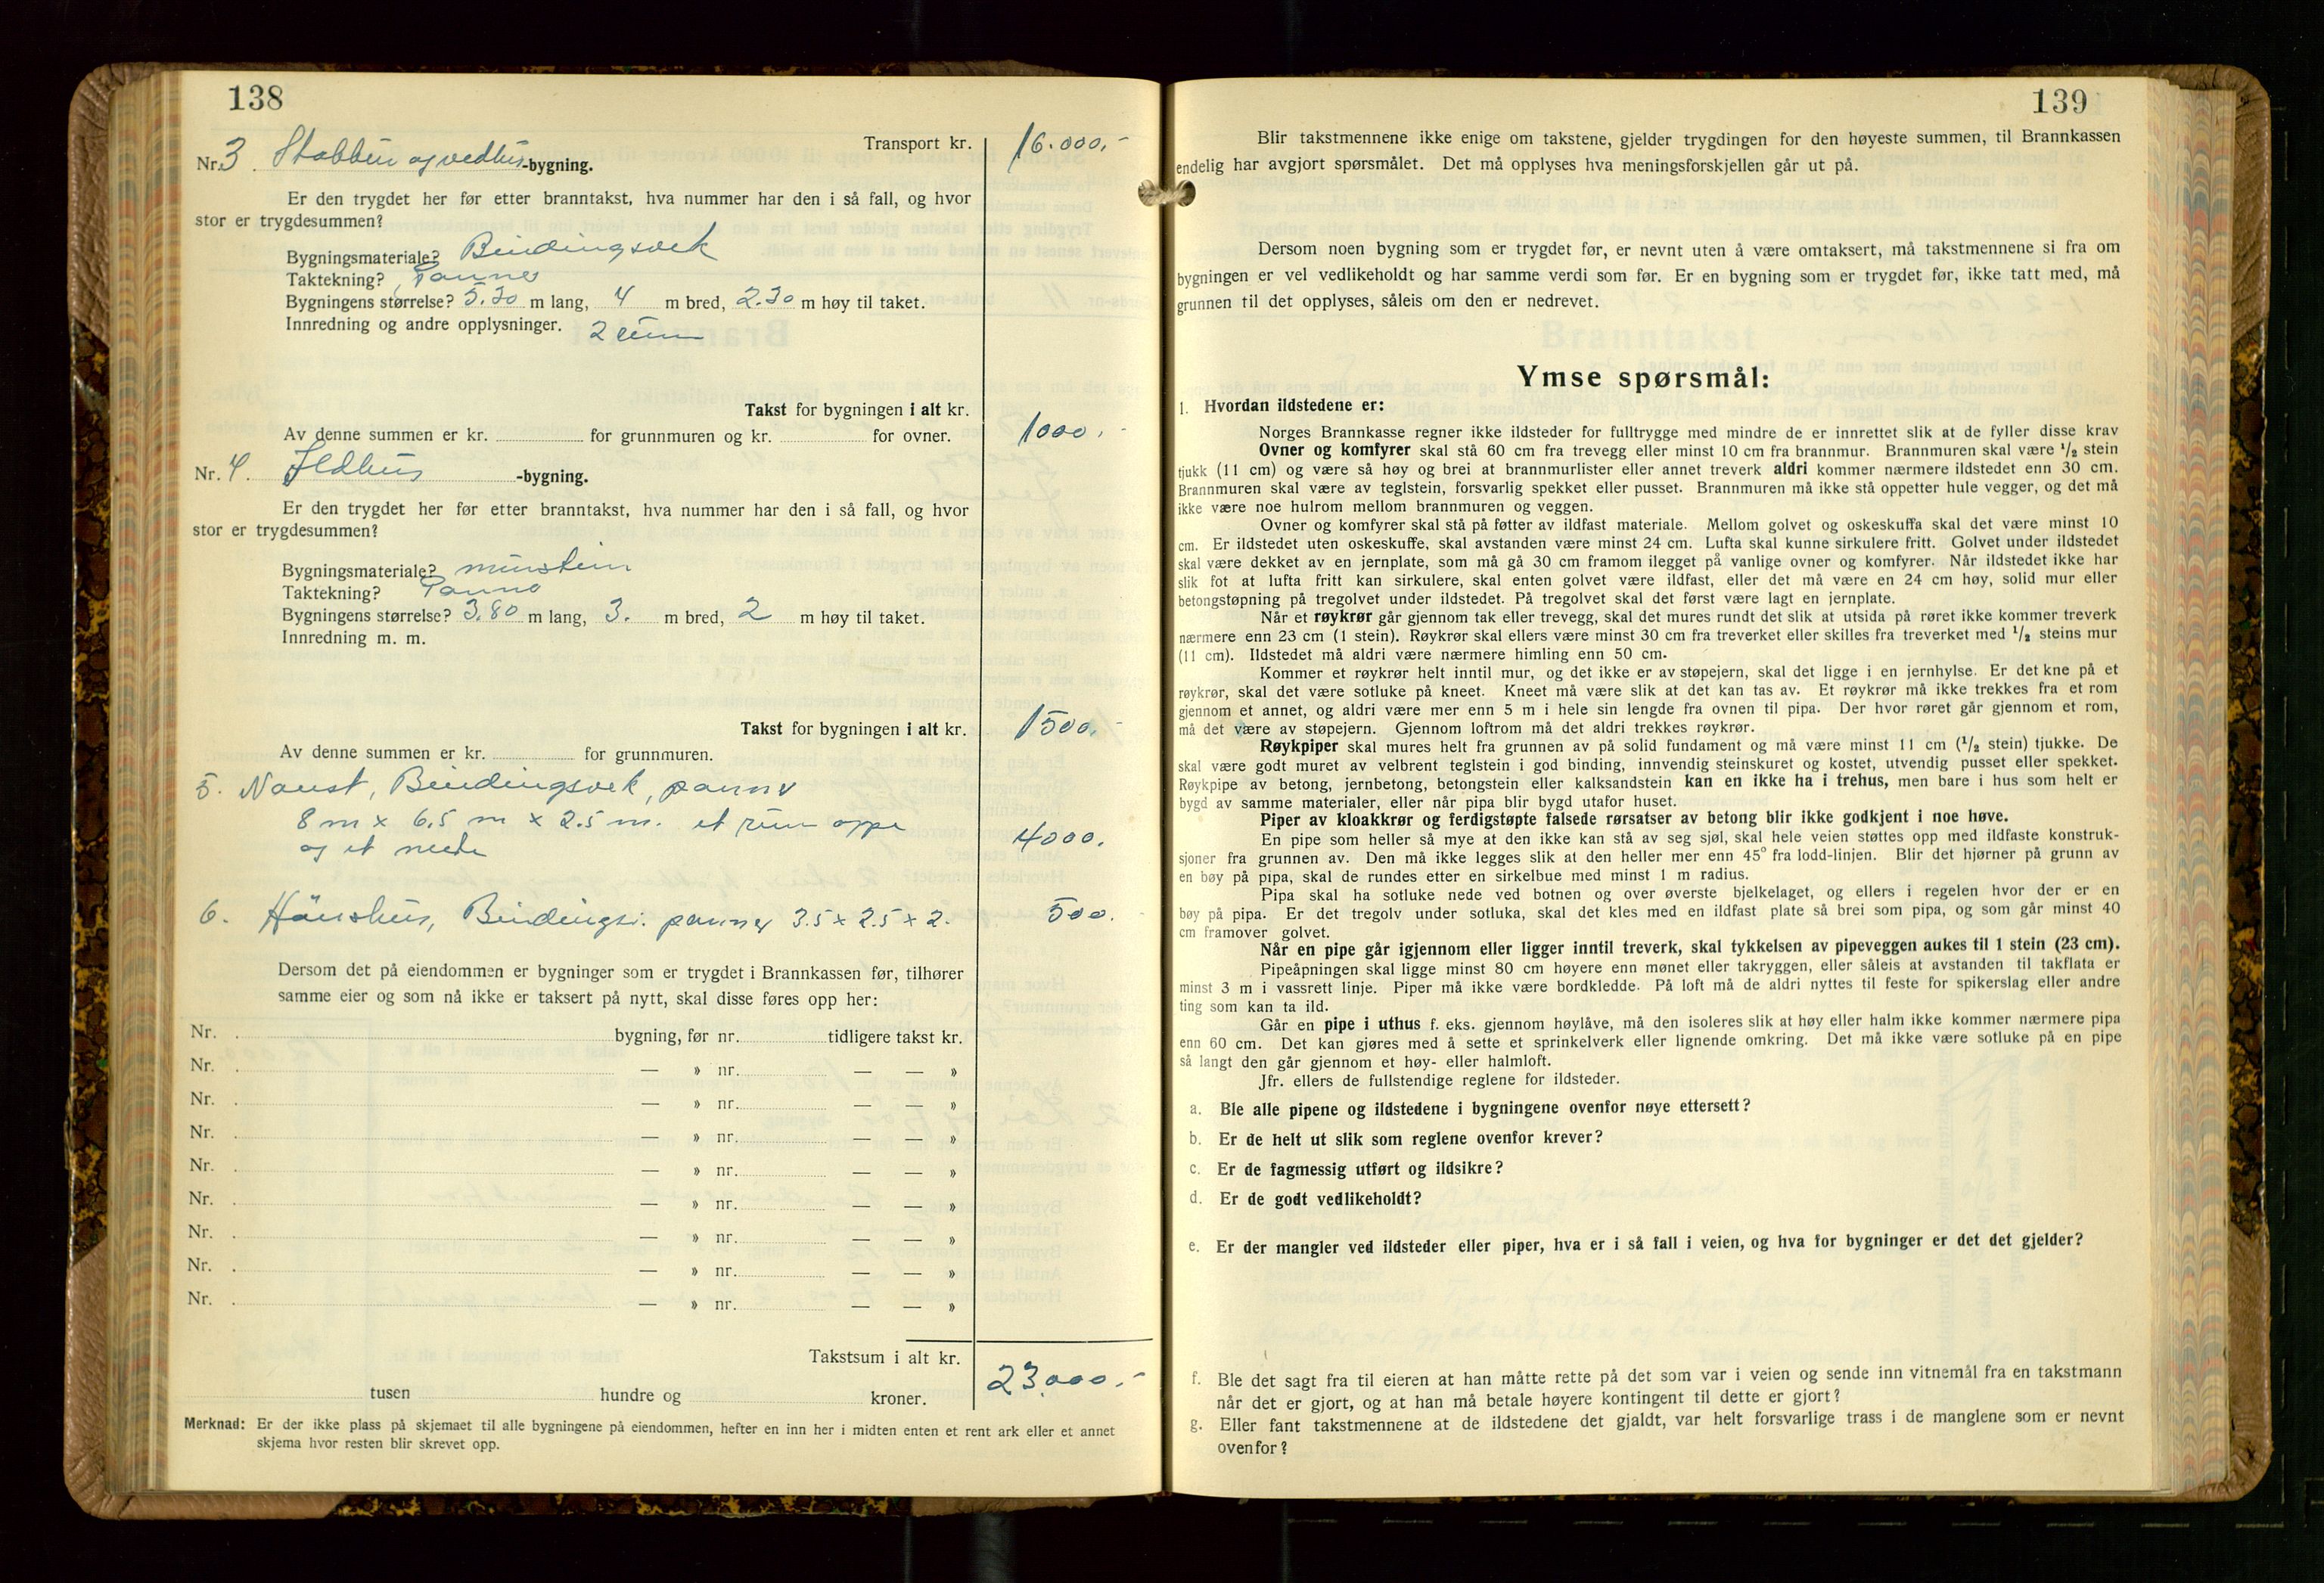 138
Transport kr. 16.000,-
Nr. 3 Stabbur og vedhus-bygning.
Er den trygdet her før etter branntakst, hva nummer har den i så fall, og hvor
stor er trygdesummen?
Bygningsmateriale? Bindingsverk
Taktekning? Panner
Bygningens størrelse? 5.30 m lang, 4 m bred, 2.30 m høy til taket.
Innredning og andre opplysninger. 2 rum
Takst for bygningen i alt kr.
Av denne summen er kr. for grunnmuren og kr. for ovner. 1000,-
Nr. 4. Ildhus -bygning.
Er den trygdet her før etter branntakst, hva nummer har den i så fall, og hvor
stor er trygdesummen?
Bygningsmateriale? murstein
Taktekning? Panne
Bygningens størrelse? 3.80 m lang, 3. m bred, 2 m høy til taket.
Innredning m. m.
Takst for bygningen i alt kr. 1500,-
Av denne summen er kr. for grunnmuren.
5. Naust, Bindingsverk, panner
8 m x 6.5 m x 2.5 m. et rum oppe
og et nede 4000.
6. Hönshus, Bindingsv. panner 3.5 x 2.5 x 2. 500.-
Dersom det på eiendommen er bygninger som er trygdet i Brannkassen før, tilhører
samme eier og som nå ikke er taksert på nytt, skal disse føres opp her:
Nr. bygning, før nr. tidligere takst kr.
Nr. — » nr. — — »
Nr. — » nr. — — »
Nr. — » nr. — — »
Nr. — » nr. — — »
Nr. — » nr. — — »
Nr. — » nr. — — »
Nr. — » nr. — — »
Nr. — » nr. — — »
Takstsum i alt kr. 23.000.-
tusen hundre og kroner.
Merknad: Er der ikke plass på skjemaet til alle bygningene på eiendommen, hefter en inn her i midten enten et rent ark eller et annet
skjema hvor resten blir skrevet opp.
139
Blir takstmennene ikke enige om takstene, gjelder trygdingen for den høyeste summen, til Brannkassen
endelig har avgjort spørsmålet. Det må opplyses hva meningsforskjellen går ut på.
Dersom noen bygning som er trygdet før, er nevnt uten å være omtaksert, må takstmennene si fra om
bygningen er vel vedlikeholdt og har samme verdi som før. Er en bygning som er trygdet før, ikke tatt med, må
grunnen til det opplyses, såleis om den er nedrevet.
Ymse spørsmål:
1. Hvordan ildstedene er:
Norges Brannkasse regner ikke ildsteder for fulltrygge med mindre de er innrettet slik at de fyller disse krav
Ovner og komfyrer skal stå 60 cm fra trevegg eller minst 10 cm fra brannmur. Brannmuren skal være ½ stein
tjukk (11 cm) og være så høy og brei at brannmurlister eller annet treverk aldri kommer nærmere ildstedet enn 30 cm.
Brannmuren skal være av teglstein, forsvarlig spekket eller pusset. Brannmuren må ikke stå oppetter hule vegger, og det må
ikke være noe hulrom mellom brannmuren og veggen.
Ovner og komfyrer skal stå på føtter av ildfast materiale. Mellom golvet og oskeskuffa skal det være minst 10
cm. Er ildstedet uten oskeskuffe, skal avstanden være minst 24 cm. Lufta skal kunne sirkulere fritt. Golvet under ildstedet
skal være dekket av en jernplate, som må gå 30 cm framom ilegget på vanlige ovner og komfyrer. Når ildstedet ikke har
slik fot at lufta fritt kan sirkulere, skal enten golvet være ildfast, eller det må være en 24 cm høy, solid mur eller
betongstøpning på tregolvet under ildstedet. På tregolvet skal det først være lagt en jernplate.
Når et røykrør går gjennom tak eller trevegg, skal det mures rundt det slik at utsida på røret ikke kommer treverk
nærmere enn 23 cm (1 stein). Røykrør skal ellers være minst 30 cm fra treverket eller skilles fra treverket med ½ steins mur
(11 cm). Ildstedet må aldri være nærmere himling enn 50 cm.
Kommer et røykrør helt inntil mur, og det ikke er av støpejern, skal det ligge i en jernhylse. Er det kne på et
røykrør, skal det være sotluke på kneet. Kneet må være slik at det kan tas av. Et røykrør må ikke trekkes fra et rom
gjennom et annet, og aldri være mer enn 5 m i hele sin lengde fra ovnen til pipa. Der hvor røret går gjennom et rom,
må det være av støpejern. Gjennom loftrom må det aldri trekkes røykrør.
Røykpiper skal mures helt fra grunnen av på solid fundament og må være minst 11 cm (½ stein) tjukke. De
skal være godt muret av velbrent teglstein i god binding, innvendig steinskuret og kostet, utvendig pusset eller spekket.
Røykpipe av betong, jernbetong, betongstein eller kalksandstein kan en ikke ha i trehus, men bare i hus som helt er
bygd av samme materialer, eller når pipa blir bygd utafor huset.
Piper av kloakkrør og ferdigstøpte falsede rørsatser av betong blir ikke godkjent i noe høve.
En pipe som heller så mye at den ikke kan stå av seg sjøl, skal hele veien støttes opp med ildfaste konstruk-
sjoner fra grunnen av. Den må ikke legges slik at den heller mer enn 45° fra lodd-linjen. Blir det hjørner på grunn av
en bøy på pipa, skal de rundes etter en sirkelbue med minst 1 m radius.
Pipa skal ha sotluke nede ved botnen og over øverste bjelkelaget, og ellers i regelen hvor der er en
bøy på pipa. Er det tregolv under sotluka, skal det kles med en ildfast plate så brei som pipa, og som går minst 40
cm framover golvet.
Når en pipe går igjennom eller ligger inntil treverk, skal tykkelsen av pipeveggen aukes til 1 stein (23 cm).
Pipeåpningen skal ligge minst 80 cm høyere enn mønet eller takryggen, eller såleis at avstanden til takflata er
minst 3 m i vassrett linje. Piper må ikke være bordkledde. På loft må de aldri nyttes til feste for spikerslag eller andre
ting som kan ta ild.
Går en pipe i uthus f. eks. gjennom høylåve, må den isoleres slik at høy eller halm ikke kommer nærmere pipa
enn 60 cm. Det kan gjøres med å sette et sprinkelverk eller lignende omkring. Det må ikke være sotluke på en pipe
så langt den går gjennom et høy- eller halmloft.
Jfr. ellers de fullstendige reglene for ildsteder.
a. Ble alle pipene og ildstedene i bygningene ovenfor nøye ettersett?
b. Er de helt ut slik som reglene ovenfor krever?
c. Er de fagmessig utført og ildsikre?
d. Er de godt vedlikeholdt?
e. Er der mangler ved ildsteder eller piper, hva er i så fall i veien, og hva for bygninger er det det gjelder?
f. Ble det sagt fra til eieren at han måtte rette på det som var i veien og sende inn vitnemål fra en takstmann
når det er gjort, og at han må betale høyere kontingent til dette er gjort?
g. Eller fant takstmennene at de ildstedene det gjaldt, var helt forsvarlige trass i de manglene som er nevnt
ovenfor?